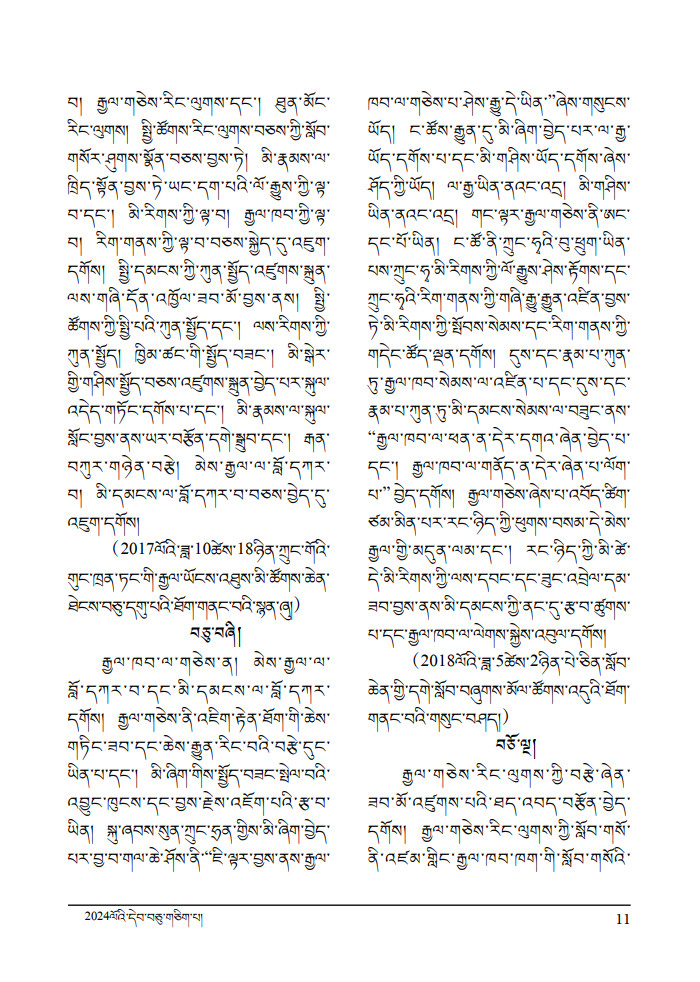 བ། རྒྱལ་གཅེས་རིང་ལུགས་དང་། ཐུན་མོང་
རིང་ལུགས། སྤྱི་ཚོགས་རིང་ལུགས་བཅས་ཀྱི་སློབ་
གསོར་ཤུགས་སྣོན་བཅས་བྱས་ཏེ། མི་རྣམས་ལ་
ཁྲིད་སྟོན་བྱས་ཏེ་ཡང་དག་པའི་ལོ་རྒྱུས་ཀྱི་ལྟ་
བ་དང་། མི་རིགས་ཀྱི་ལྟ་བ། རྒྱལ་ཁབ་ཀྱི་ལྟ་
བ། རིག་གནས་ཀྱི་ལྟ་བ་བཅས་སྐྱེད་དུ་འཇུག་
དགོས། སྤྱི་དམངས་ཀྱི་ཀུན་སྤྱོད་འཛུགས་སྐྲུན་
ལས་གཞི་དོན་འཁྱོལ་ཟབ་མོ་བྱས་ནས། སྤྱི་
ཚོགས་ཀྱི་སྤྱི་པའི་ཀུན་སྤྱོད་དང་། ལས་རིགས་ཀྱི་
ཀུན་སྤྱོད། ཁྱིམ་ཚང་གི་སྤྱོད་བཟང་། མི་སྒེར་
གྱི་གཤིས་སྤྱོད་བཅས་འཛུགས་སྐྲུན་བྱེད་པར་སྐུལ་
འདེད་གཏོང་དགོས་པ་དང་། མི་རྣམས་ལ་སྐུལ་
སློང་བྱས་ནས་ཡར་བརྩོན་དགེ་སྒྲུབ་དང་། རྒན་
བཀུར་གཉེན་བརྩེ། མེས་རྒྱལ་ལ་བློ་དཀར་
བ། མི་དམངས་ལ་བློ་དཀར་བ་བཅས་བྱེད་དུ་
འཇུག་དགོས།
(2017ལོའི་ཟླ་10ཚེས་18ཉིན་ཀྲུང་གོའི་
གུང་ཁྲན་ཏང་གི་རྒྱལ་ཡོངས་འཐུས་མི་ཚོགས་ཆེན་
ཐེངས་བཅུ་དགུ་པའི་ཐོག་གནང་བའི་སྙན་ཞུ།)
བཅུ་བཞི།
རྒྱལ་ཁབ་ལ་གཅེས་ན། མེས་རྒྱལ་ལ་
བློ་དཀར་བ་དང་མི་དམངས་ལ་བློ་དཀར་
དགོས། རྒྱལ་གཅེས་ནི་འཇིག་རྟེན་ཐོག་གི་ཆེས་
གཏིང་ཟབ་དང་ཆེས་རྒྱུན་རིང་བའི་བརྩེ་དུང་
ཡིན་པ་དང་། མི་ཞིག་གིས་སྤྱོད་བཟང་སྤེལ་བའི་
འབྱུང་ཁུངས་དང་བྱས་རྗེས་འཇོག་པའི་རྩ་བ་
ཡིན། སྐུ་ཞབས་སུན་ཀྲུང་ཧྲན་གྱིས་མི་ཞིག་བྱེད་
པར་བྱ་བ་གལ་ཆེ་ཤོས་ནི་“ཇི་ལྟར་བྱས་ནས་རྒྱལ་
ཁབ་ལ་གཅེས་པ་ཤེས་རྒྱུ་དེ་ཡིན་”ཞེས་གསུངས་
ཡོད། ང་ཚོས་རྒྱུན་དུ་མི་ཞིག་བྱེད་པར་ལ་རྒྱ་
ཡོད་དགོས་པ་དང་མི་གཤིས་ཡོད་དགོས་ཞེས་
ཤོད་ཀྱི་ཡོད། ལ་རྒྱ་ཡིན་ནའང་འདྲ། མི་གཤིས་
ཡིན་ནའང་འདྲ། གང་ལྟར་རྒྱལ་གཅེས་ནི་ཨང་
དང་པོ་ཡིན། ང་ཚོ་ནི་ཀྲུང་ཧྭའི་བུ་ཕྲུག་ཡིན་
པས་ཀྲུང་ཧྭ་མི་རིགས་ཀྱི་ལོ་རྒྱུས་ཤེས་རྟོགས་དང་
ཀྲུང་ཧྭའི་རིག་གནས་ཀྱི་གཞི་རྒྱུ་རྒྱུན་འཛིན་བྱས་
ཏེ་མི་རིགས་ཀྱི་སྤོབས་སེམས་དང་རིག་གནས་ཀྱི་
གདེང་ཚོད་ལྡན་དགོས། དུས་དང་རྣམ་པ་ཀུན་
ཏུ་རྒྱལ་ཁབ་སེམས་ལ་འཛིན་པ་དང་དུས་དང་
རྣམ་པ་ཀུན་ཏུ་མི་དམངས་སེམས་ལ་བཟུང་ནས་
“རྒྱལ་ཁབ་ལ་ཕན་ན་དེར་དགའ་ཞེན་བྱེད་པ་
དང་། རྒྱལ་ཁབ་ལ་གནོད་ན་དེར་ཞེན་པ་ལོག་
པ་” བྱེད་དགོས། རྒྱལ་གཅེས་ཞེས་པ་འབོད་ཚིག་
ཙམ་མིན་པར་རང་ཉིད་ཀྱི་ཕུགས་བསམ་དེ་མེས་
རྒྱལ་གྱི་མདུན་ལམ་དང་། རང་ཉིད་ཀྱི་མི་ཚེ་
དེ་མི་རིགས་ཀྱི་ལས་དབང་དང་ཟུང་འབྲེལ་དམ་
ཟབ་བྱས་ནས་མི་དམངས་ཀྱི་ནང་དུ་རྩ་བ་ཚུགས་
པ་དང་རྒྱལ་ཁབ་ལ་ལེགས་སྐྱེས་འབུལ་དགོས།
(2018ལོའི་ཟླ་5ཚེས་2ཉིན་པེ་ཅིན་སློབ་
ཆེན་གྱི་དགེ་སློབ་བཞུགས་མོལ་ཚོགས་འདུའི་ཐོག་
གནང་བའི་གསུང་བཤད།)
བཅོ་ལྔ།
རྒྱལ་གཅེས་རིང་ལུགས་ཀྱི་བརྩེ་ཞེན་
ཟབ་མོ་འཛུགས་པའི་ཐད་འབད་བརྩོན་བྱེད་
དགོས། རྒྱལ་གཅེས་རིང་ལུགས་ཀྱི་སློབ་གསོ་
ནི་འཛམ་གླིང་རྒྱལ་ཁབ་ཁག་གི་སློབ་གསོའི་
2024ལོའི་དེབ་བཅུ་གཅིག་པ།
11